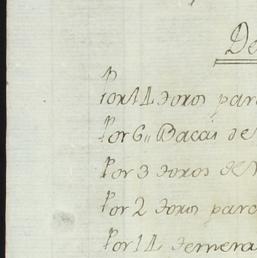 De
Por 14 toros para
Por 6,, Bacas de
Por 3 toros de
Por 2 toros para
Por 14 ternera